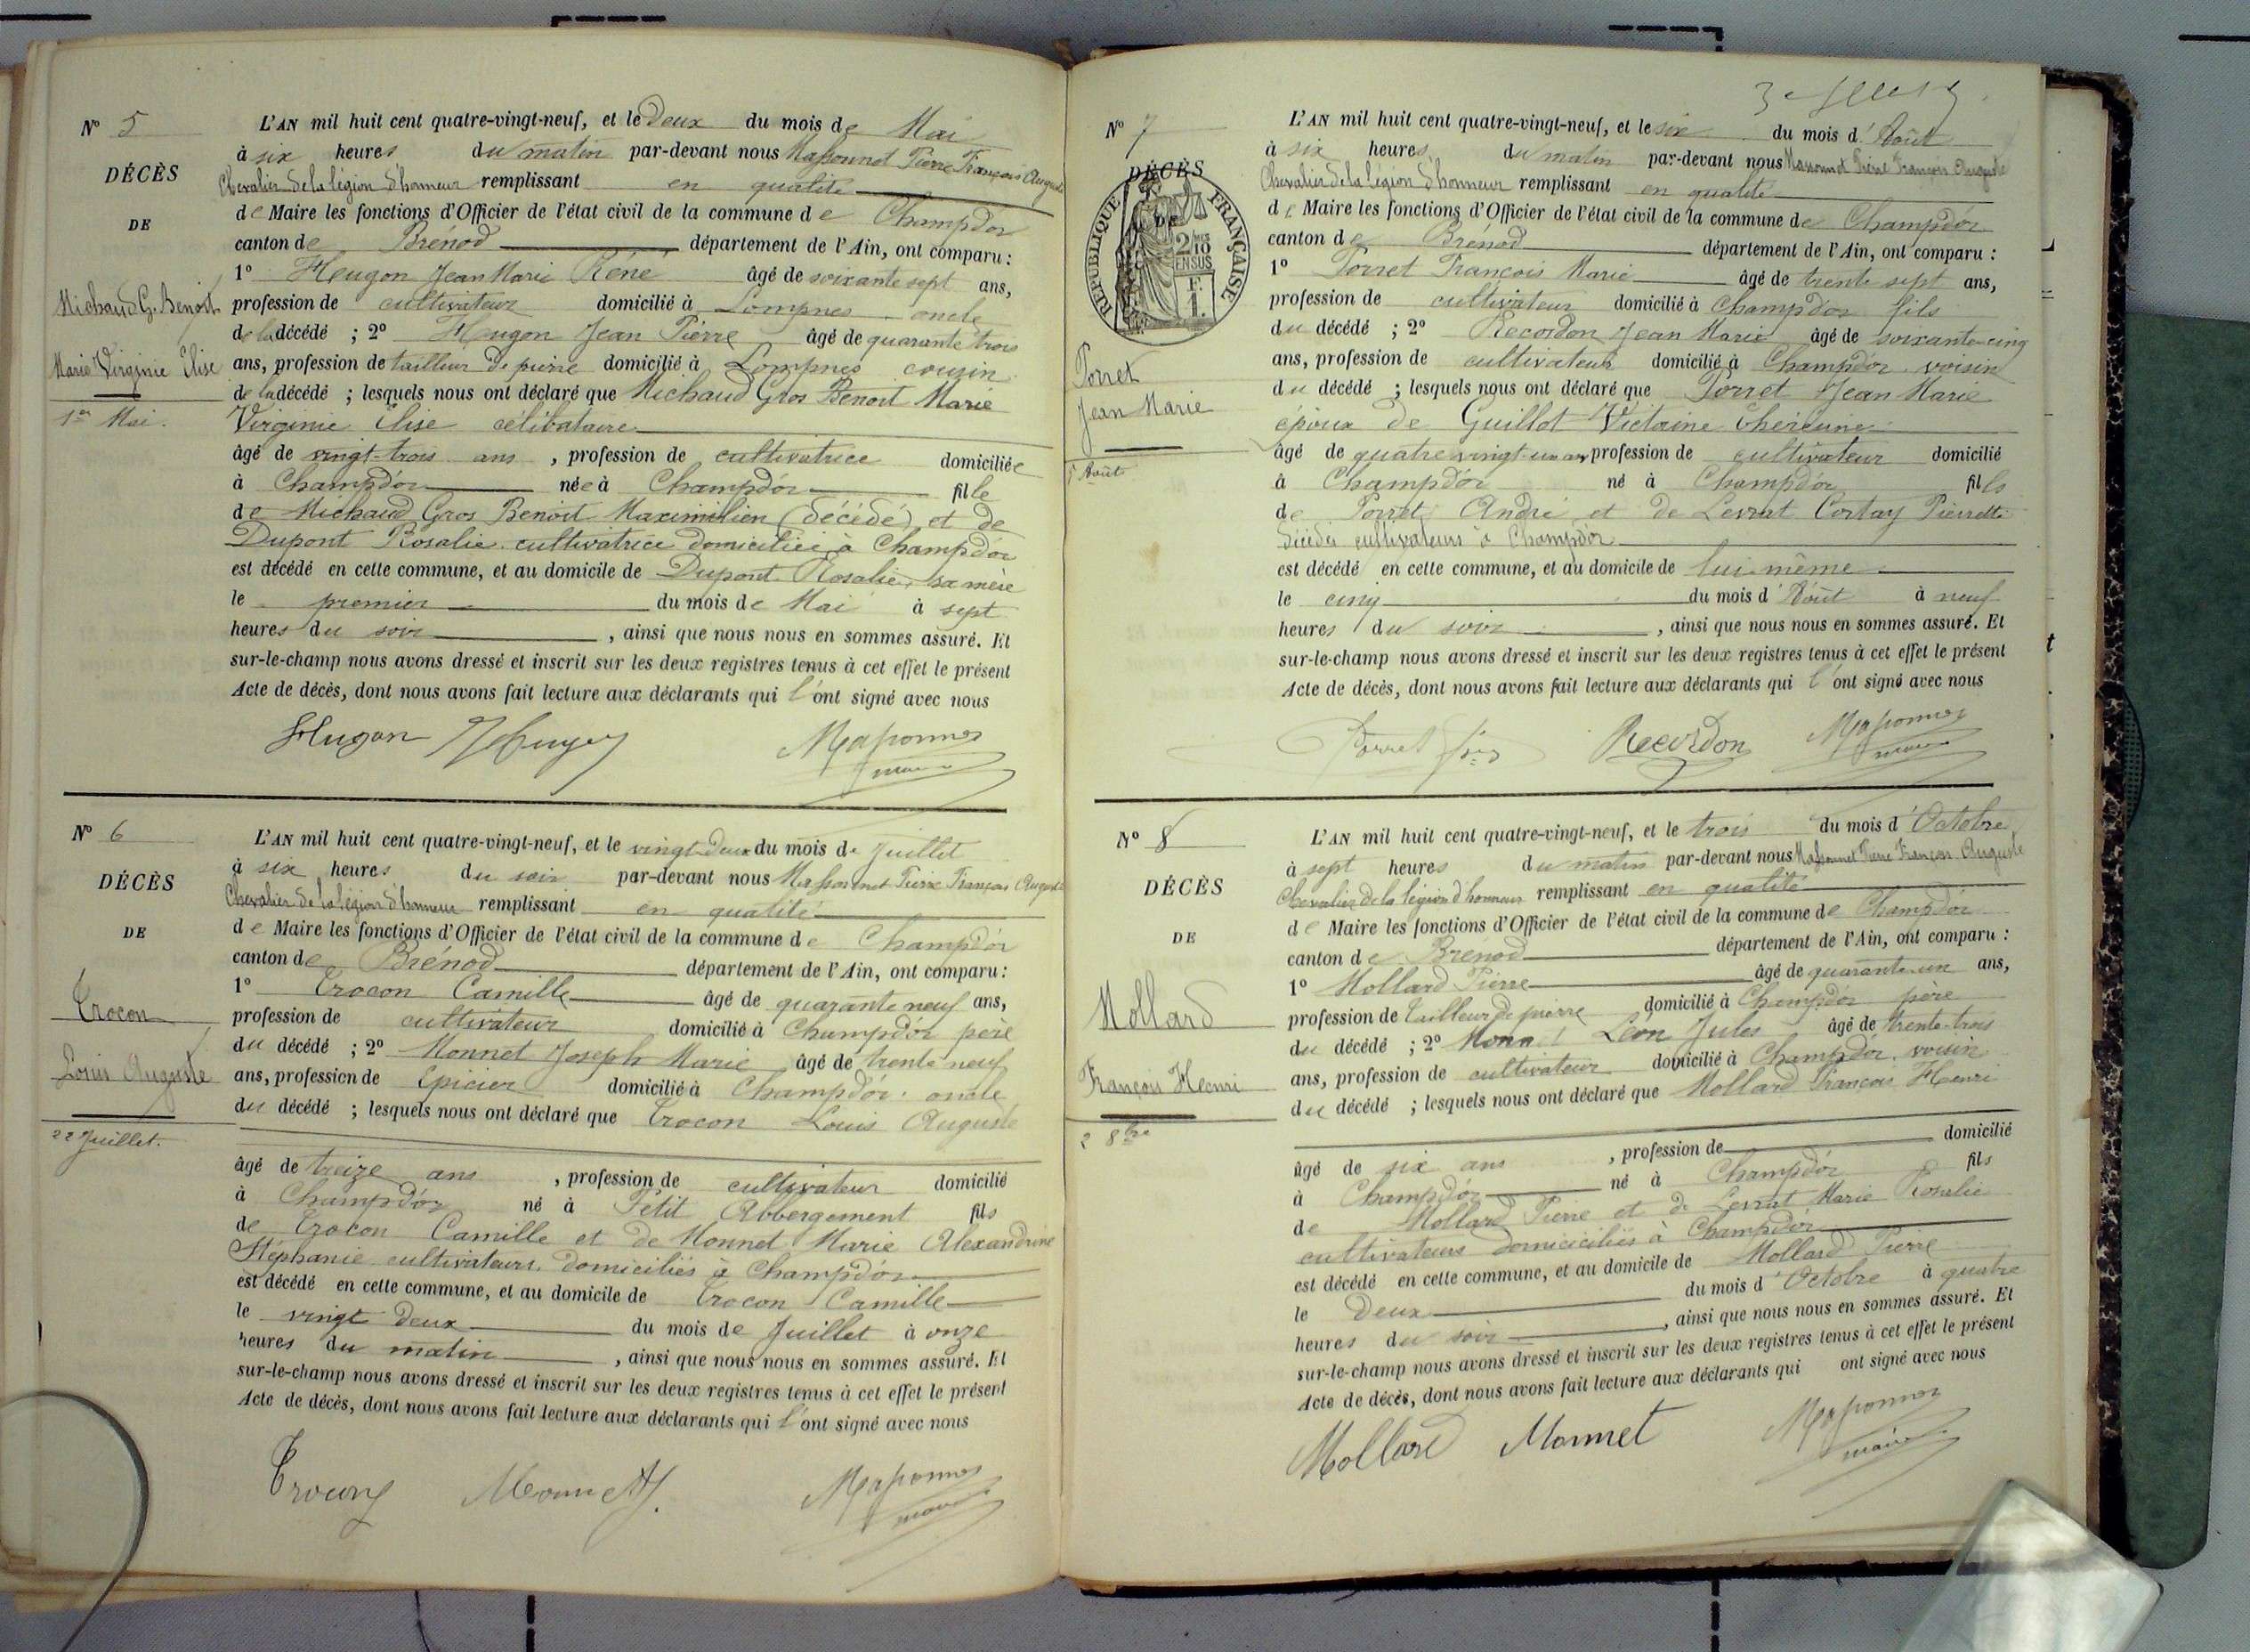 N° 5
DÉCÈS
DE
Michaud G. Benoit
Marie Virginie Elise
1er Mai.
L'AN mil huit cent quatre-vingt-neuf, et le Deux du mois de Mai
à six heures du matin par-devant nous Massonnet Pierre François Auguste
Chevalier de la légion d'honneur remplissant en qualité
de Maire les fonctions d'Officier de l'état civil de la commune de Champdor
canton de Brénod département de l'Ain, ont comparu :
1° Hugon Jean Marie Réné âgé de soixante sept ans,
profession de cultivateur domicilié à Lompnes oncle
de la décédé ; 2° Hugon Jean Pierre âgé de quarante trois
ans, profession de tailleur de pierre domicilié à Lompnes cousin
de la décédé ; lesquels nous ont déclaré que Michaud Gros Benoit Marie
Virginie Elise célibataire
âgé de vingt-trois ans , profession de cultivatrice domiciliée
à Champdor née à Champdor fille
de Michaud Gros Benoit Maximilien (décédé) et de
Dupont Rosalie cultivatrice domiciliée à Champdor
est décédé en cette commune, et au domicile de Dupont Rosalie, sa mère
le premier du mois de Mai à sept
heures du soir , ainsi que nous nous en sommes assuré. Et
sur-le-champ nous avons dressé et inscrit sur les deux registres tenus à cet effet le présent
Acte de décès, dont nous avons fait lecture aux déclarants qui l'ont signé avec nous
Hugon Massonnet
maire
N° 6
DÉCÈS
DE
Trocon
Louis Auguste
22 Juillet.
L'AN mil huit cent quatre-vingt-neuf, et le vingt-deux du mois de Juillet
à six heures du soir par-devant nous Massonnet Pierre François Auguste
Chevalier de la légion d'honneur remplissant en qualité
de Maire les fonctions d'Officier de l'état civil de la commune de Champdor
canton de Brénod département de l'Ain, ont comparu :
1° Trocon Camille âgé de quarante neuf ans,
profession de cultivateur domicilié à Champdor père
du décédé ; 2° Monnet Joseph Marie âgé de trente neuf
ans, profession de Epicier domicilié à Champdor oncle
du décédé ; lesquels nous ont déclaré que Trocon Louis Auguste
âgé de treize ans , profession de cultivateur domicilié
à Champdor né à Petit Abbergement fils
de Trocon Camille et de Monnet Marie Alexandrine
Stéphanie cultivateurs domiciliés à Champdor
est décédé en cette commune, et au domicile de Trocon Camille
le vingt deux du mois de Juillet à onze
heures du matin , ainsi que nous nous en sommes assuré. Et
sur-le-champ nous avons dressé et inscrit sur les deux registres tenus à cet effet le présent
Acte de décès, dont nous avons fait lecture aux déclarants qui l'ont signé avec nous
Trocon Monnet Massonnet
maire
N° 7
DÉCÈS
DE
RÉPUBLIQUE FRANÇAISE
2/10
EN SUS
F.
1.
Porret
Jean Marie
5 Août
L'AN mil huit cent quatre-vingt-neuf, et le six du mois d'Août
à six heures du matin par-devant nous Massonnet Pierre François Auguste
Chevalier de la légion d'honneur remplissant en qualité
de Maire les fonctions d'Officier de l'état civil de la commune de Champdor
canton de Brénod département de l'Ain, ont comparu :
1° Porret François Marie âgé de trente sept ans,
profession de cultivateur domicilié à Champdor fils
du décédé ; 2° Recordon Jean Marie âgé de soixante-cinq
ans, profession de cultivateur domicilié à Champdor voisin
du décédé ; lesquels nous ont déclaré que Porret Jean Marie
époux de Guillot Victoine Thérésine
âgé de quatre vingt-un ans profession de cultivateur domicilié
à Champdor né à Champdor fils
de Porret André et de Levrat Cortay Pierrette
décédés cultivateurs à Champdor
est décédé en cette commune, et au domicile de lui-même
le cinq du mois d'Août à neuf
heures du soir , ainsi que nous nous en sommes assuré. Et
sur-le-champ nous avons dressé et inscrit sur les deux registres tenus à cet effet le présent
Acte de décès, dont nous avons fait lecture aux déclarants qui l'ont signé avec nous
Porret Recordon Massonnet
maire
N° 8
DÉCÈS
DE
Mollard
François Henri
2 8bre
L'AN mil huit cent quatre-vingt-neuf, et le trois du mois d'Octobre
à sept heures du matin par-devant nous Massonnet Pierre François Auguste
Chevalier de la légion d'honneur remplissant en qualité
de Maire les fonctions d'Officier de l'état civil de la commune de Champdor
canton de Brénod département de l'Ain, ont comparu :
1° Mollard Pierre âgé de quarante-un ans,
profession de tailleur de pierre domicilié à Champdor père
du décédé ; 2° Monnet Léon Jules âgé de trente-trois
ans, profession de cultivateur domicilié à Champdor voisin
du décédé ; lesquels nous ont déclaré que Mollard François Henri
âgé de six ans , profession de domicilié
à Champdor né à Champdor fils
de Mollard Pierre et de Levrat Marie Rosalie
cultivateurs domiciliés à Champdor
est décédé en cette commune, et au domicile de Mollard Pierre
le Deux du mois d'Octobre à quatre
heures du soir , ainsi que nous nous en sommes assuré. Et
sur-le-champ nous avons dressé et inscrit sur les deux registres tenus à cet effet le présent
Acte de décès, dont nous avons fait lecture aux déclarants qui ont signé avec nous
Mollard Monnet Massonnet
maire